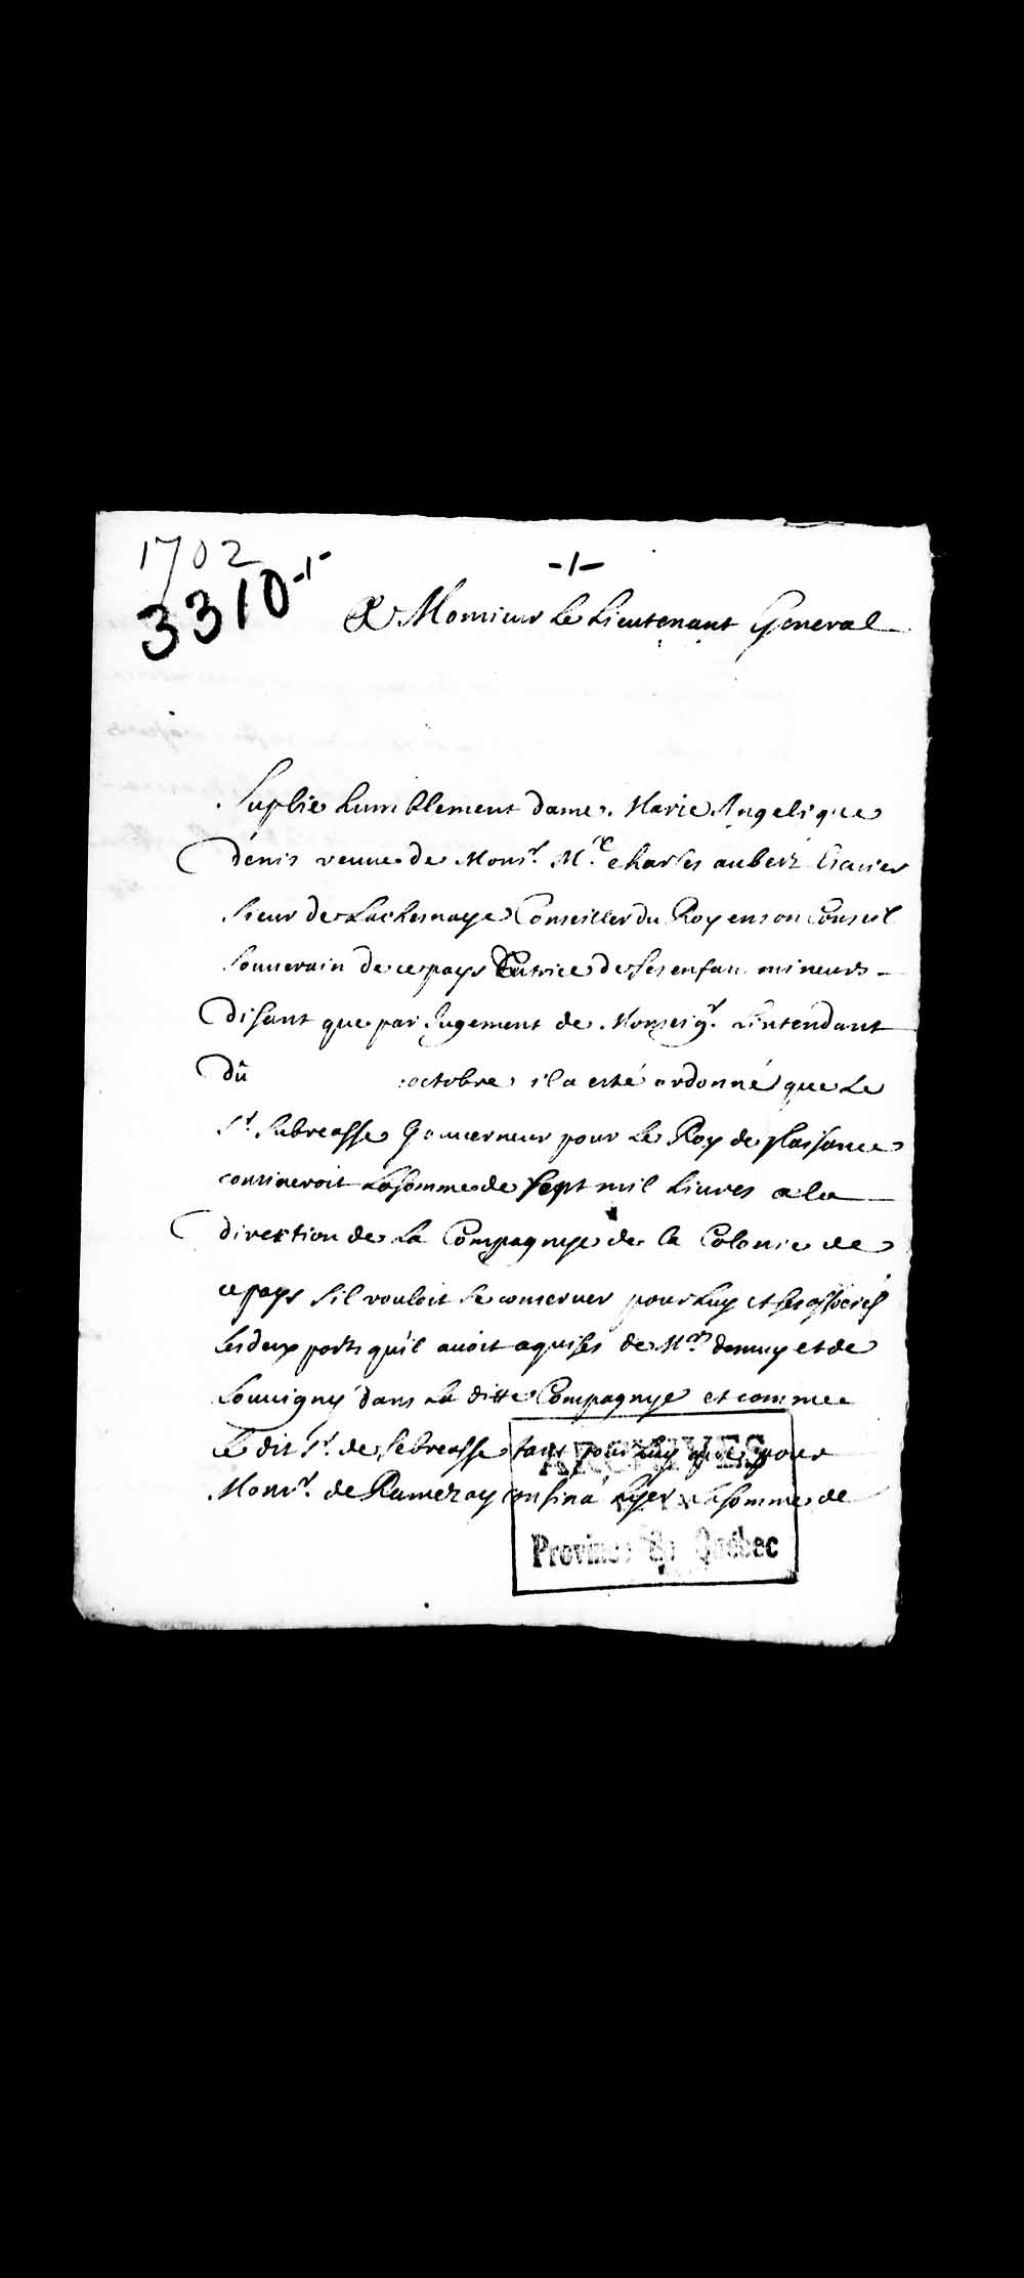 1702
3310-1-
-1-
A Monsieur Le Lieutenant General
Suplie humblement dame Marie Angelique
denis veuue de Monsr. Me. charles aubert Escuier
sieur de Lachesnaye Conseiller du Roy en son Conseil
souuerain de ce pays tutrice de ses enfan mineurs
disant que par Jugement de Monseigr. L'intendant
dû octobre il a esté ordonné que Le
Sr. Subrecasse Gouuerneur pour Le Roy de plaisance
consineroit La somme de sept mil Liures a la
direction de La Compagnye de la Colonie de
ce pays s'il vouloit se conseruer pour Luy et ses associés
Les deux parts qu'il auoit aquises de Mrs demuy et de
Louuigny dans La ditte Compagnye et comme
Le dit Sr. de Sebrecasse tant pour Luy que pour
Monsr. de Ramezay consina hyer La somme de
ARCHIVES
Province de Québec